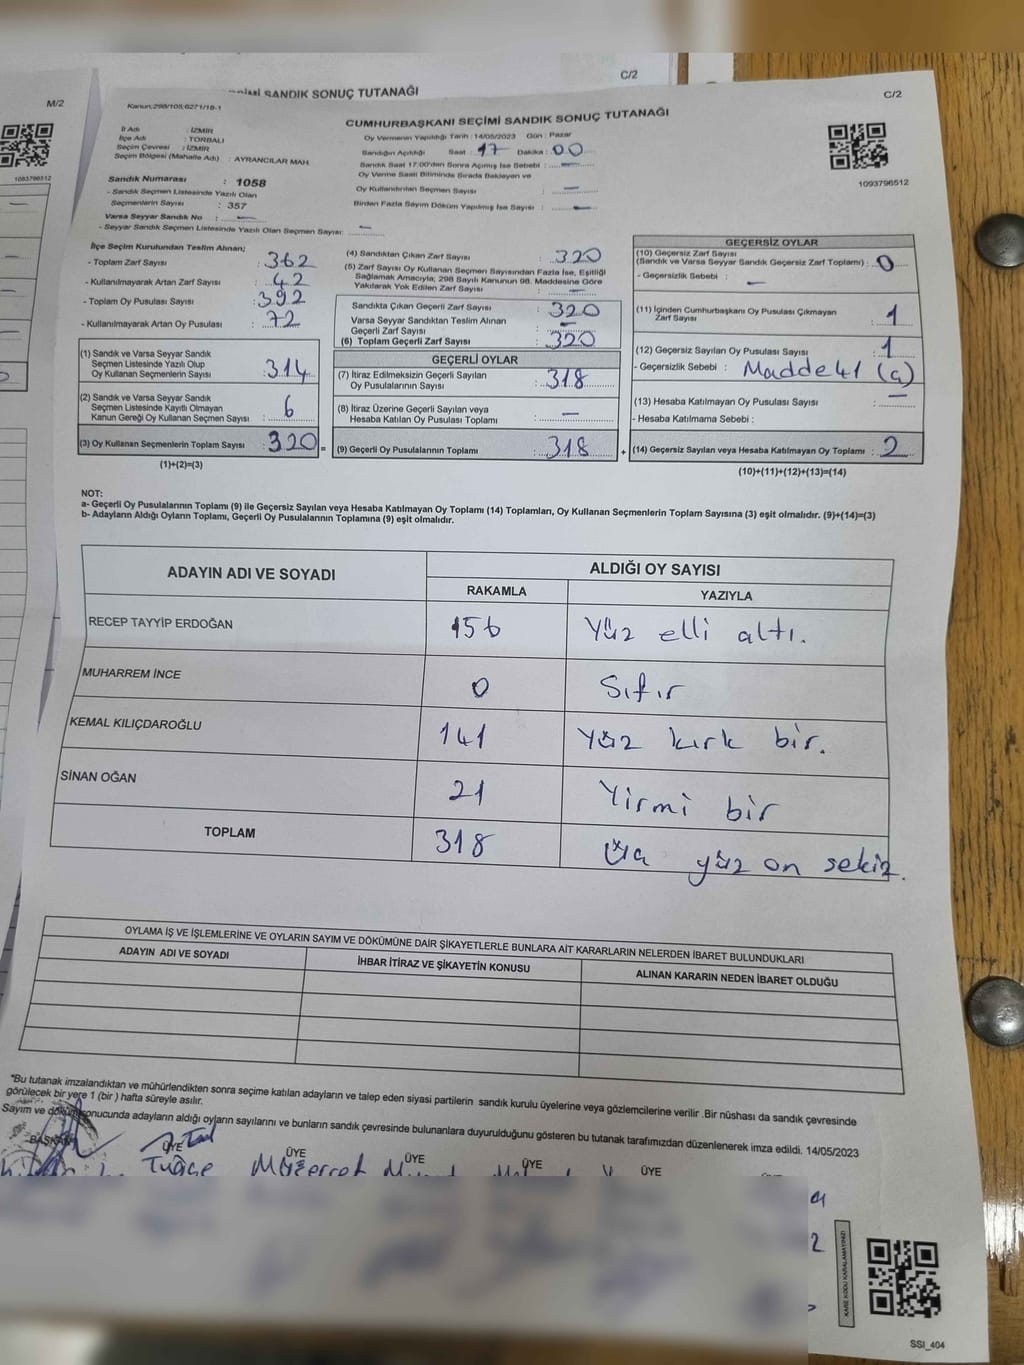 C/2
SANDIK SONUÇ TUTANAĞI
M/2
C/2
Kanun:298/105,6271/18-1
CUMHURBAŞKANI SEÇİMİ SANDIK SONUÇ TUTANAĞI
1093796512
1093796512
İl Adı : İZMİR
İlçe Adı : TORBALI
Seçim Çevresi : İZMİR
Seçim Bölgesi (Mahalle Adı) : AYRANCILAR MAH.
Sandık Numarası : 1058
- Sandık Seçmen Listesinde Yazılı Olan
Seçmenlerin Sayısı : 357
Varsa Seyyar Sandık No : —
- Seyyar Sandık Seçmen Listesinde Yazılı Olan Seçmen Sayısı : —
Oy Vermenin Yapıldığı Tarih : 14/05/2023 Gün : Pazar
Sandığın Açıldığı Saat : 17 Dakika : 00
Sandık Saat 17:00'den Sonra Açılmış İse Sebebi : —
Oy Verme Saati Bitiminde Sırada Bekleyen ve
Oy Kullandırılan Seçmen Sayısı : —
Birden Fazla Sayım Döküm Yapılmış İse Sayısı : —
İlçe Seçim Kurulundan Teslim Alınan;
- Toplam Zarf Sayısı : 362
- Kullanılmayarak Artan Zarf Sayısı : 42
- Toplam Oy Pusulası Sayısı : 392
- Kullanılmayarak Artan Oy Pusulası : 72
(1) Sandık ve Varsa Seyyar Sandık
Seçmen Listesinde Yazılı Olup
Oy Kullanan Seçmenlerin Sayısı : 314
(2) Sandık ve Varsa Seyyar Sandık
Seçmen Listesinde Kayıtlı Olmayan
Kanun Gereği Oy Kullanan Seçmen Sayısı : 6
(3) Oy Kullanan Seçmenlerin Toplam Sayısı : 320 =
(1)+(2)=(3)
(4) Sandıktan Çıkan Zarf Sayısı : 320
(5) Zarf Sayısı Oy Kullanan Seçmen Sayısından Fazla İse, Eşitliği
Sağlamak Amacıyla, 298 Sayılı Kanunun 98. Maddesine Göre
Yakılarak Yok Edilen Zarf Sayısı : —
Sandıkta Çıkan Geçerli Zarf Sayısı : 320
Varsa Seyyar Sandıktan Teslim Alınan
Geçerli Zarf Sayısı : —
(6) Toplam Geçerli Zarf Sayısı : 320
GEÇERLİ OYLAR
(7) İtiraz Edilmeksizin Geçerli Sayılan
Oy Pusulalarının Sayısı : 318
(8) İtiraz Üzerine Geçerli Sayılan veya
Hesaba Katılan Oy Pusulası Toplamı : —
(9) Geçerli Oy Pusulalarının Toplamı : 318 +
GEÇERSİZ OYLAR
(10) Geçersiz Zarf Sayısı
(Sandık ve Varsa Seyyar Sandık Geçersiz Zarf Toplamı) : 0
- Geçersizlik Sebebi :
—
(11) İçinden Cumhurbaşkanı Oy Pusulası Çıkmayan
Zarf Sayısı : 1
(12) Geçersiz Sayılan Oy Pusulası Sayısı : 1
- Geçersizlik Sebebi : Madde 41 (a)
(13) Hesaba Katılmayan Oy Pusulası Sayısı : —
- Hesaba Katılmama Sebebi :
(14) Geçersiz Sayılan veya Hesaba Katılmayan Oy Toplamı : 2
(10)+(11)+(12)+(13)=(14)
NOT:
a- Geçerli Oy Pusulalarının Toplamı (9) ile Geçersiz Sayılan veya Hesaba Katılmayan Oy Toplamı (14) Toplamları, Oy Kullanan Seçmenlerin Toplam Sayısına (3) eşit olmalıdır. (9)+(14)=(3)
b- Adayların Aldığı Oyların Toplamı, Geçerli Oy Pusulalarının Toplamına (9) eşit olmalıdır.
ADAYIN ADI VE SOYADI
ALDIĞI OY SAYISI
RAKAMLA YAZIYLA
RECEP TAYYİP ERDOĞAN 156 Yüz elli altı.
MUHARREM İNCE 0 Sıfır
KEMAL KILIÇDAROĞLU 141 Yüz kırk bir.
SİNAN OĞAN 21 Yirmi bir
TOPLAM 318 Üç yüz on sekiz.
OYLAMA İŞ VE İŞLEMLERİNE VE OYLARIN SAYIM VE DÖKÜMÜNE DAİR ŞİKAYETLERLE BUNLARA AİT KARARLARIN NELERDEN İBARET BULUNDUKLARI
ADAYIN ADI VE SOYADI İHBAR İTİRAZ VE ŞİKAYETİN KONUSU ALINAN KARARIN NEDEN İBARET OLDUĞU
*Bu tutanak imzalandıktan ve mühürlendikten sonra seçime katılan adayların ve talep eden siyasi partilerin sandık kurulu üyelerine veya gözlemcilerine verilir .Bir nüshası da sandık çevresinde
görülecek bir yere 1 (bir ) hafta süreyle asılır.
Sayım ve döküm sonucunda adayların aldığı oyların sayılarını ve bunların sandık çevresinde bulunanlara duyurulduğunu gösteren bu tutanak tarafımızdan düzenlenerek imza edildi. 14/05/2023
BAŞKAN ÜYE ÜYE ÜYE ÜYE ÜYE
Tuğçe Müzerret
KARE KODU KARALAMAYINIZ!
SSI_404